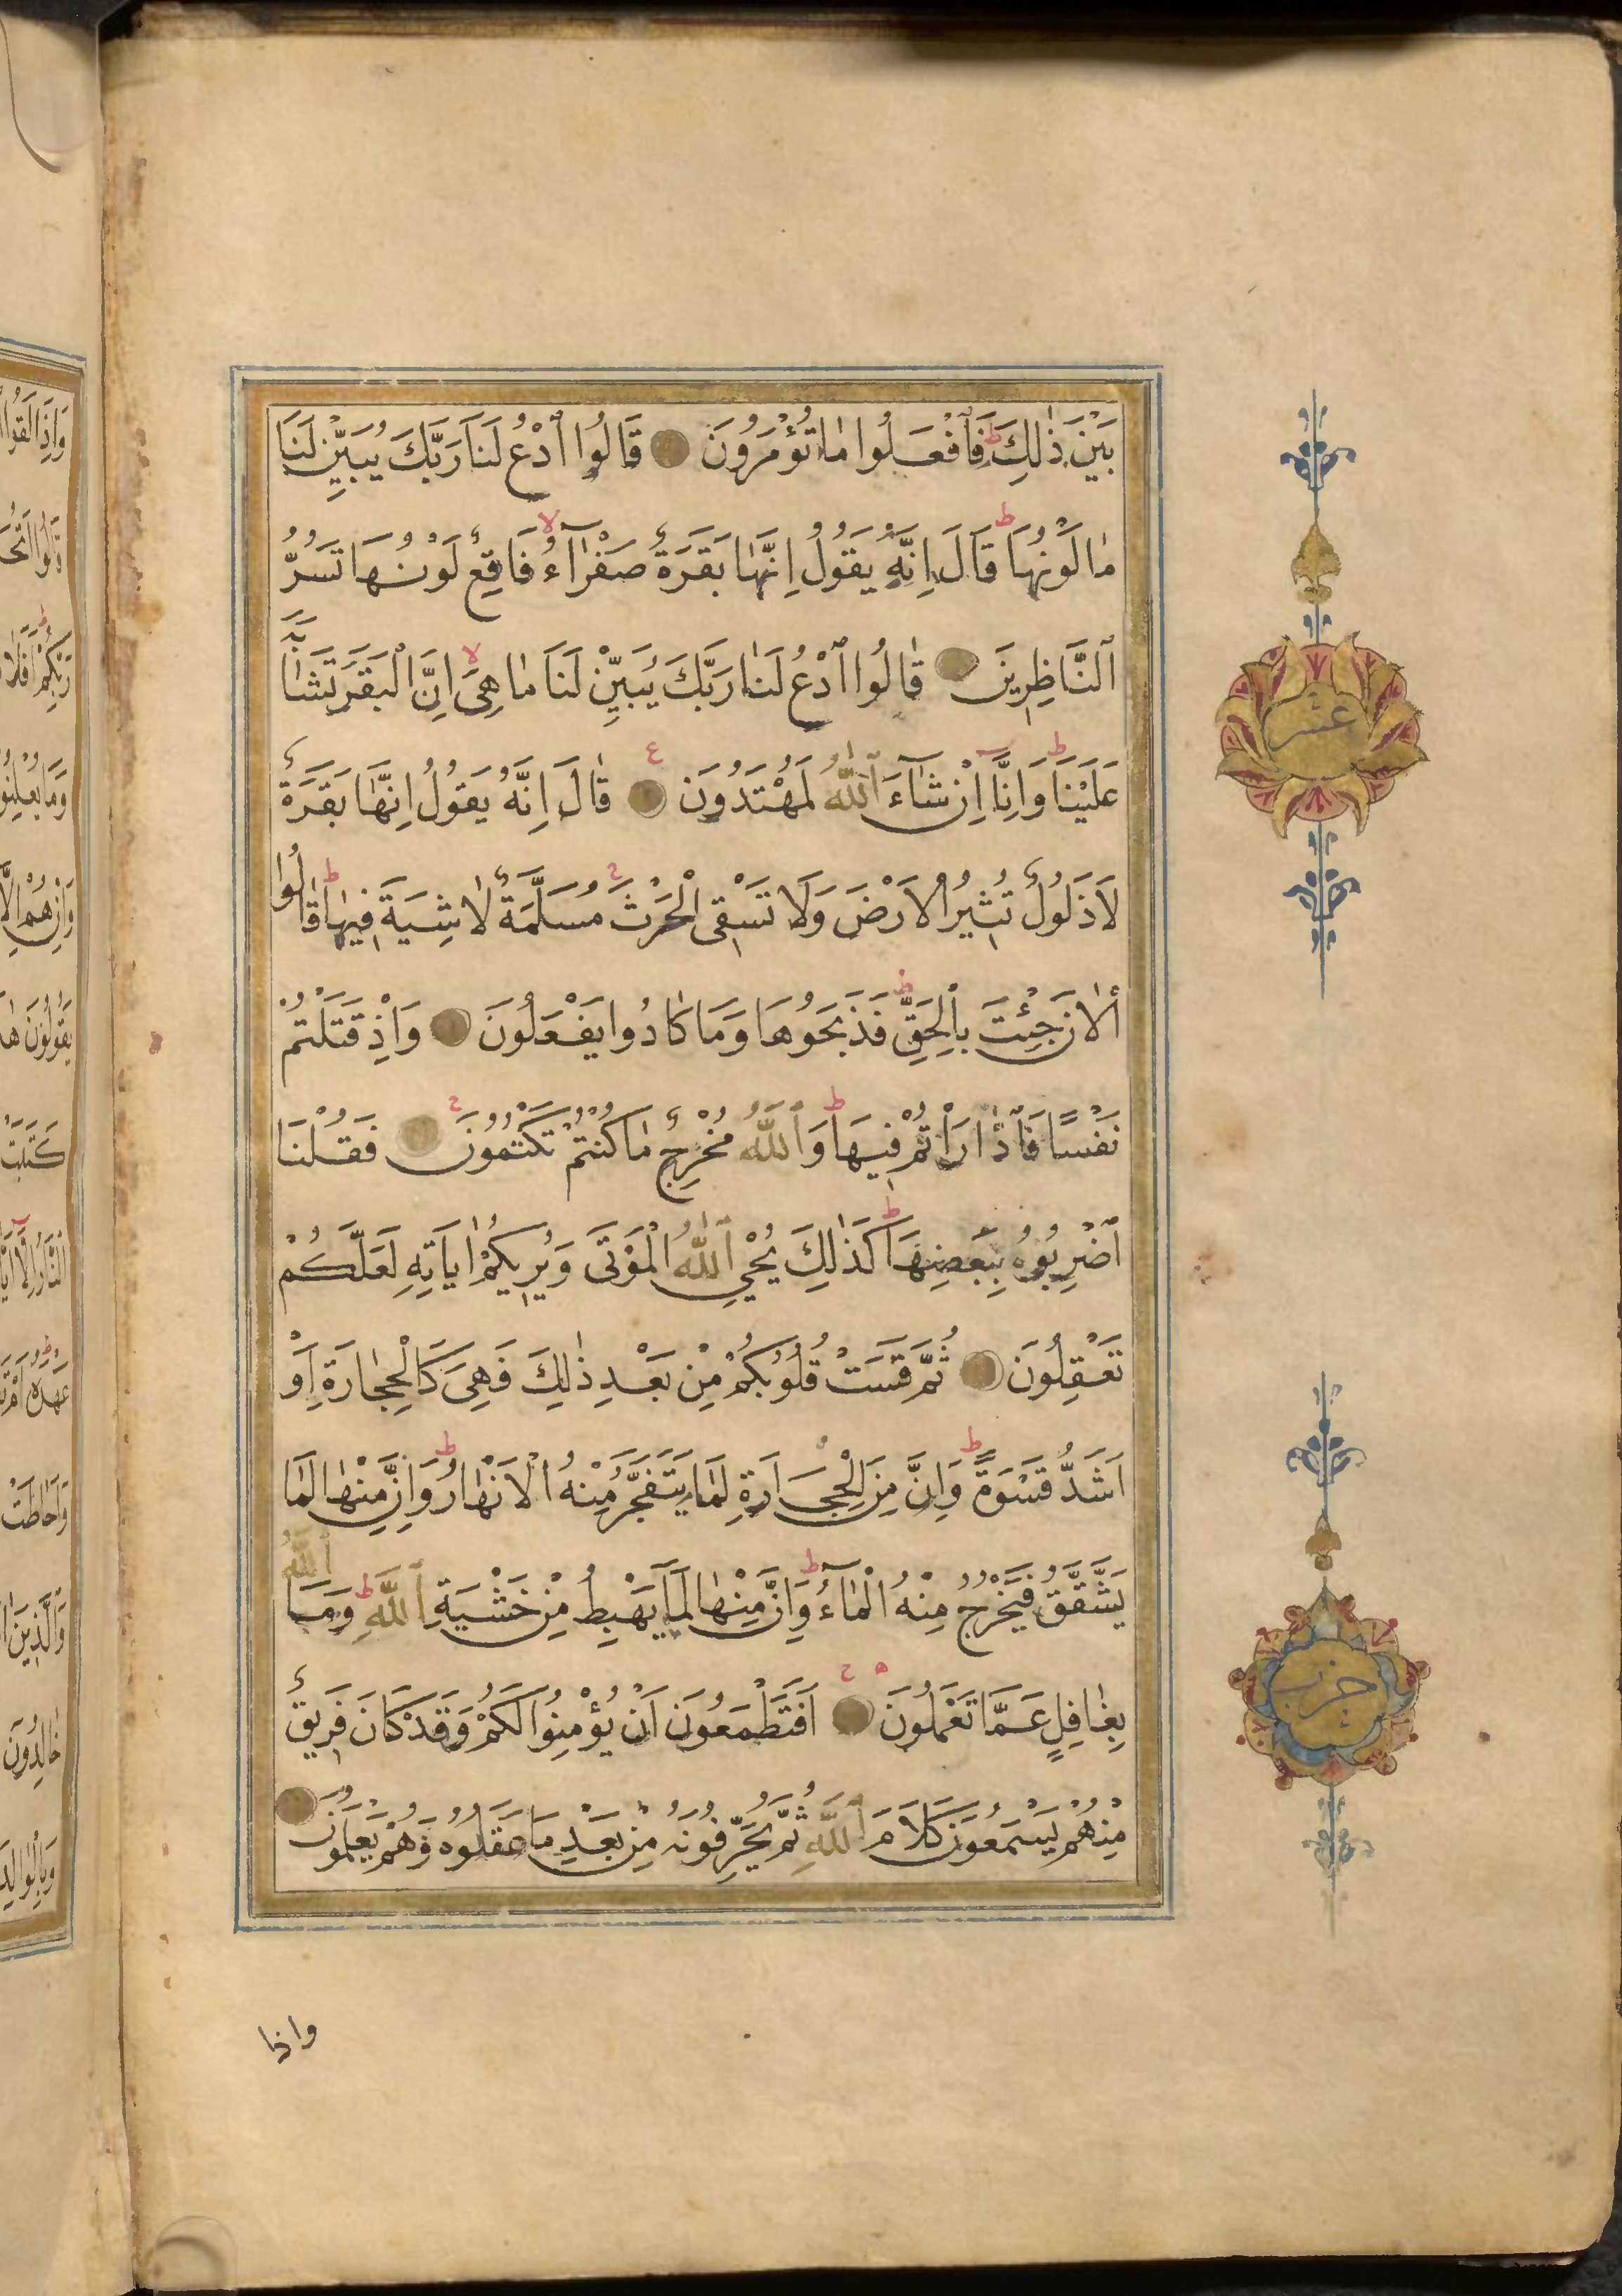 بَيْنَ ذٰلِكَ ط فَافْعَلُوا مٰا تُؤْمَرُونَ قَالُوا ٱدْعُ لَنَا رَبَّكَ يُبَيِّنْ لَنَا
مٰا لَوْنُهَا ط قَالَ اِنَّهُ يَقُولُ اِنَّهٰا بَقَرَةٌ صَفْرٰآءُ لا فَاقِعٌ لَوْنُهَا تَسُرُّ
ٱلنَّاظِرِينَ قٰالُوا ٱدْعُ لَنٰا رَبَّكَ يُبَيِّنْ لَنَا مٰا هِىَ لا اِنَّ الْبَقَرَ تَشٰابَهَ
عَلَيْنٰا ط وَاِنَّٓا اِنْ شٰآءَ ٱللّٰهُ لَمُهْتَدُونَ ع قٰالَ اِنَّهُ يَقُولُ اِنَّهٰا بَقَرَةٌ
لَا ذَلُولٌ تُثِيرُ الْاَرْضَ وَلَا تَسْقِى الْحَرْثَ ج مُسَلَّمَةٌ لٰا شِيَةَ فِيهٰا ط قٰالُوا
الْاٰنَ جِئْتَ بِالْحَقِّ ط فَذَبَحُوهَا وَمَا كَادُوا يَفْعَلُونَ وَاِذْ قَتَلْتُمْ
نَفْسًا فَادّٰارَاْتُمْ فِيهَا ط وَٱللّٰهُ مُخْرِجٌ مٰا كُنْتُمْ تَكْتُمُونَ ج فَقُلْنَا
ٱضْرِبُوهُ بِبَعْضِهَا ط كَذٰلِكَ يُحْيِ ٱللّٰهُ الْمَوْتَى وَيُرِيكُمْ اٰيَاتِهِ لَعَلَّكُمْ
تَعْقِلُونَ ثُمَّ قَسَتْ قُلُوبُكُمْ مِنْ بَعْدِ ذٰلِكَ فَهِىَ كَالْحِجٰارَةِ اَوْ
اَشَدُّ قَسْوَةً ط وَاِنَّ مِنَ الْحِجَارَةِ لَمَا يَتَفَجَّرُ مِنْهُ الْاَنْهٰارُ ط وَاِنَّ مِنْهٰا لَمَا
يَشَّقَّقُ فَيَخْرُجُ مِنْهُ الْمٰٓاءُ ط وَاِنَّ مِنْهٰا لَمَا يَهْبِطُ مِنْ خَشْيَةِ ٱللّٰهِ ط وَمَا ٱللّٰهُ
بِغٰافِلٍ عَمَّا تَعْمَلُونَ ه ج اَفَتَطْمَعُونَ اَنْ يُؤْمِنُوا لَكُمْ وَقَدْ كَانَ فَرِيقٌ
مِنْهُمْ يَسْمَعُونَ كَلَامَ ٱللّٰهِ ثُمَّ يُحَرِّفُونَهُ مِنْ بَعْدِ مَا عَقَلُوهُ وَهُمْ يَعْلَمُونَ
عشر
حزب
واذا